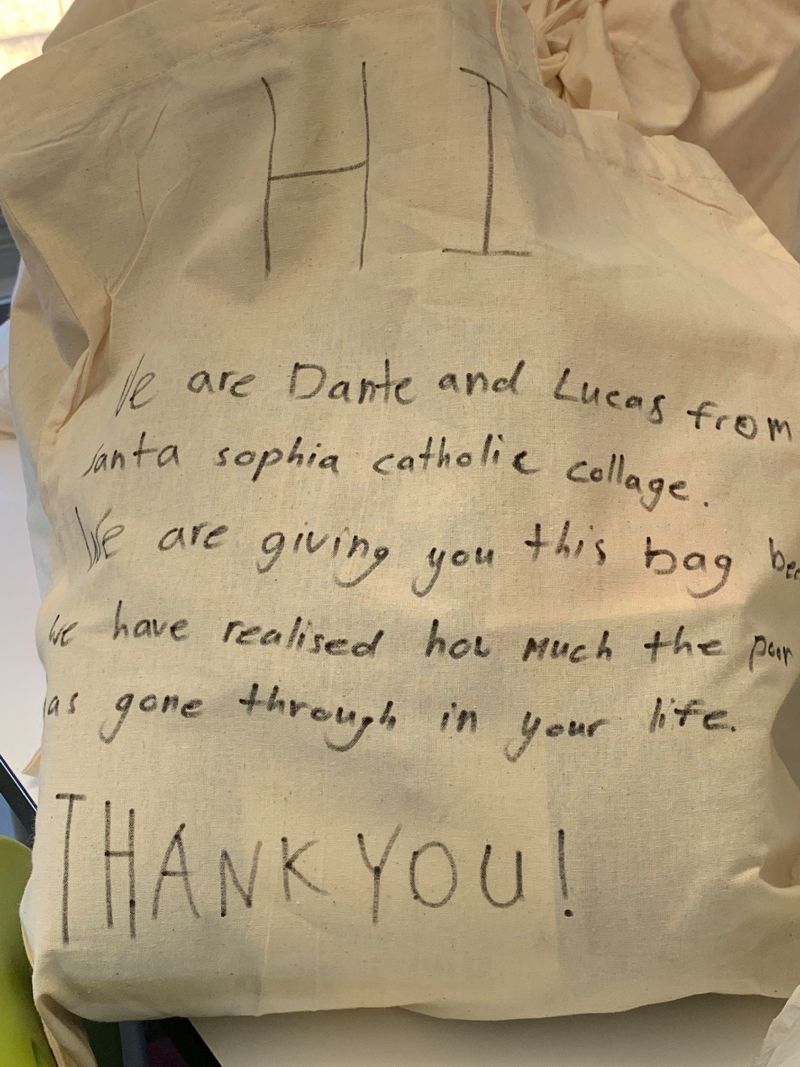 HI
We are Dante and Lucas from
santa sophia catholic collage.
We are giving you this bag
we have realised how much the poor
gone through in your life.
THANK YOU!